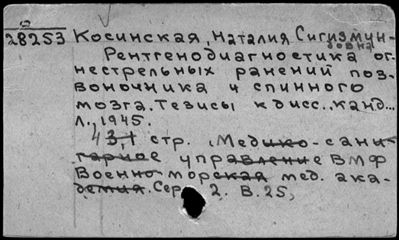 28253 Косинская, Наталия Сигизмун-
довна
Рентгенодиагностика ог-
нестрельных ранений поз-
воночника и спинного
мозга. Тезисы к дисс.. канд...
Л., 1945.
стр. (Медико-сани-
тарное управление ВМФ
Военно-морская мед. ака-
демия. Сер. 2. В. 25,